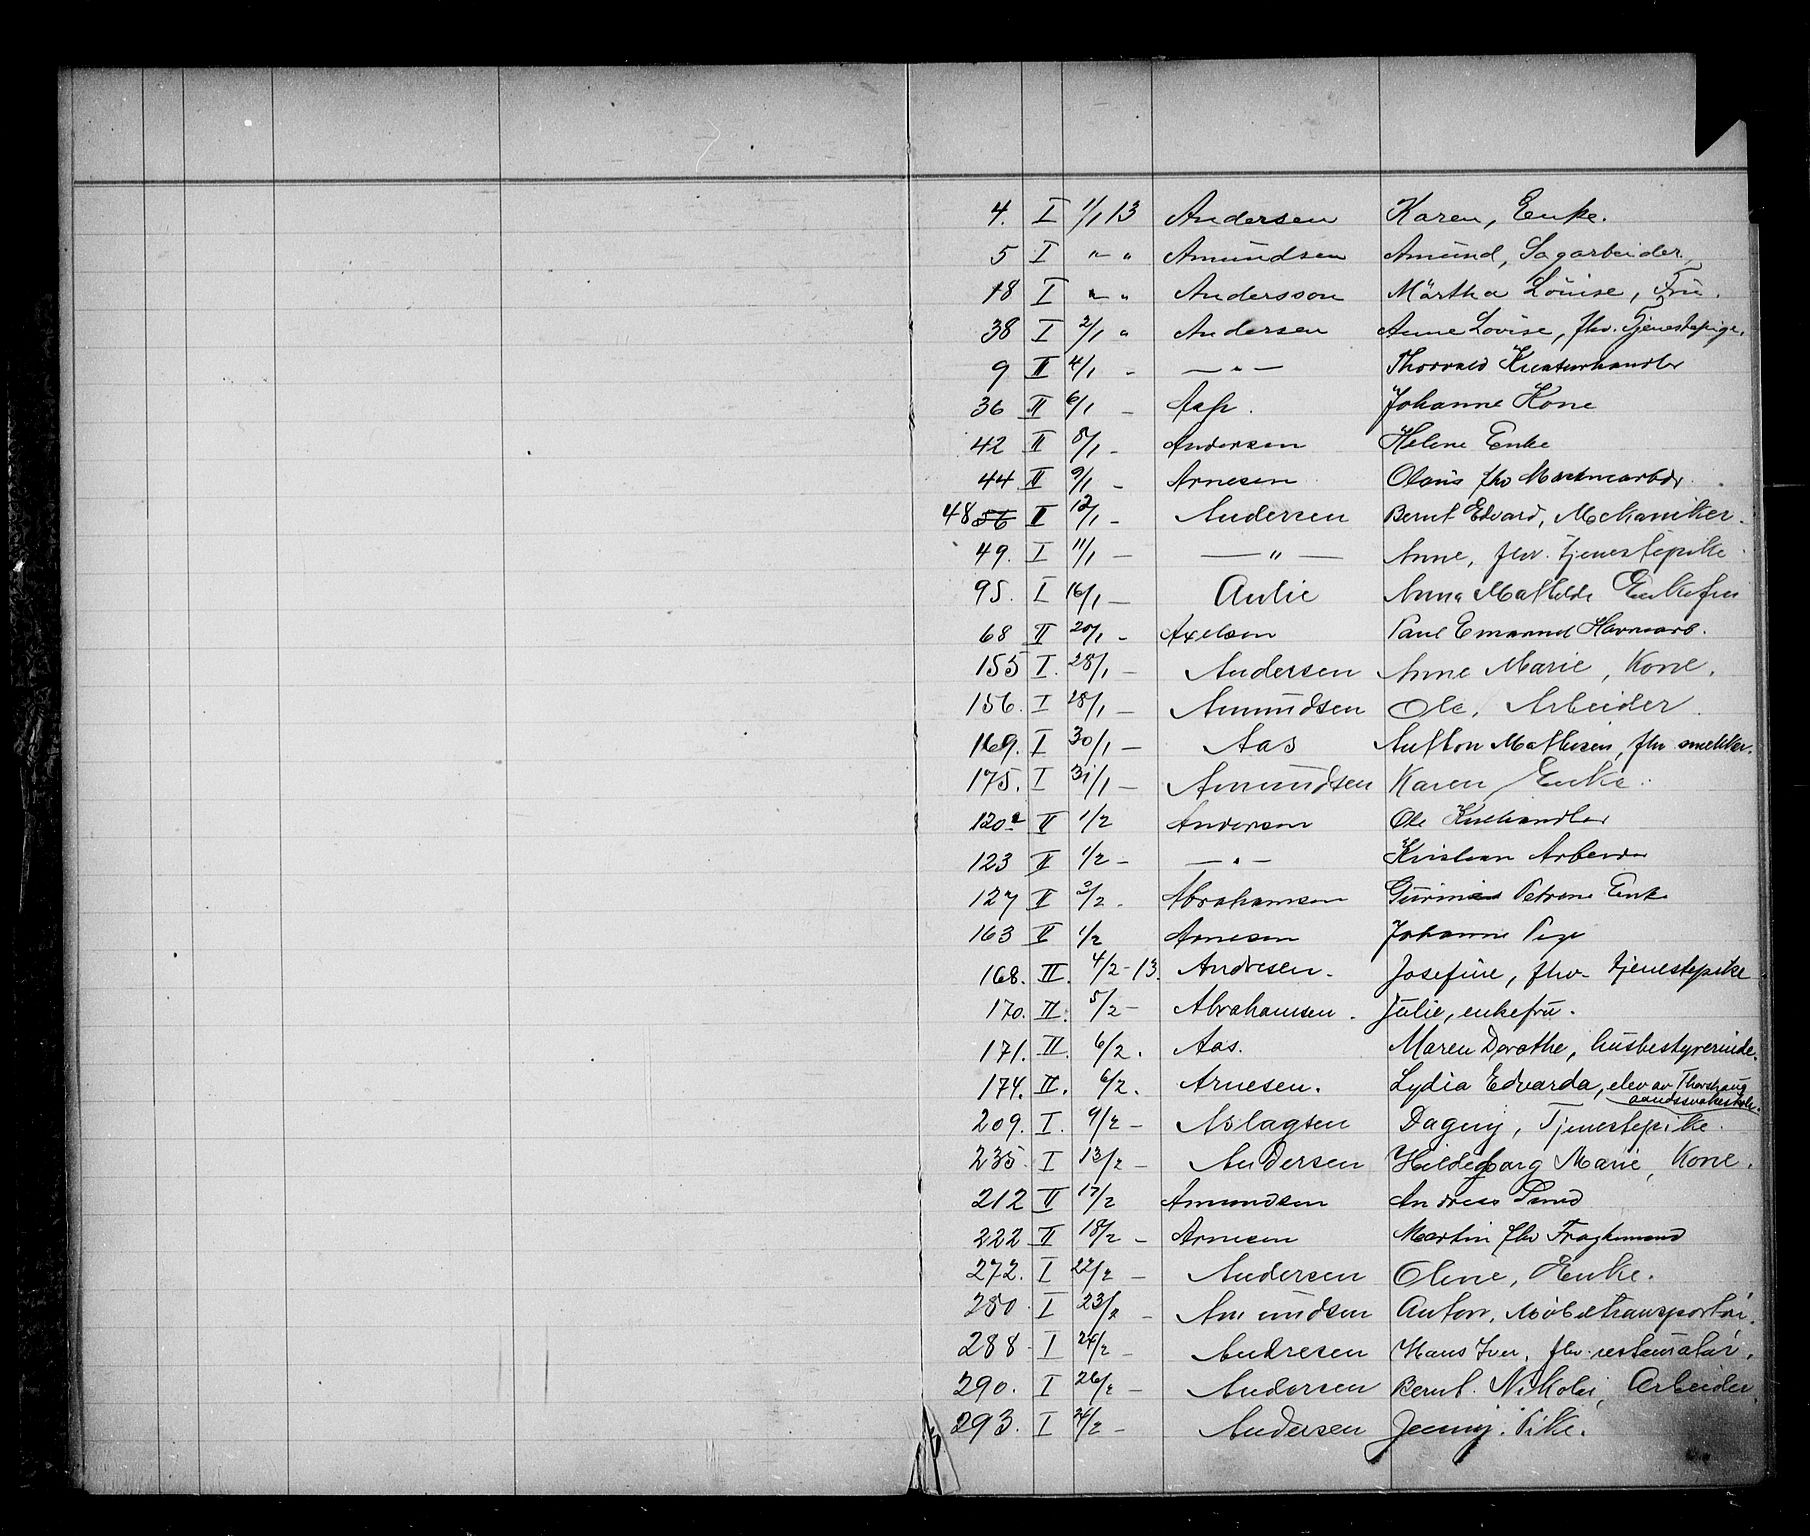 4. I 1/1 13 Andersen Karen, Enke.
5 I " " Amundsen Amund, Sagarbeider.
18 I " " Andersson Märtha Louise, Fru.
38 I 2/1 " Andersen Anne Lovise, fhv. Tjenestepige.
9 II 4/1 - — " — Thorvald Kreaturhandler
36 II 6/1 - Johanne Kone
42 II 8/1 - Andersen Helene Enke
44 II 9/1 - Arnesen Olaus fhv
48 56 I 12/1 - Andersen Bernt Edvard, Mekaniker.
49. I 11/1 — — " — Anne, fhv. Tjenestepike.
95. I 16/1 — Aulie Anna Mathilde Enkefru
68 II 20/1 - Axelsen Paul Emanuel Havnearb.
155 I. 28/1 — Andersen Anne Marie, Kone.
156. I 28/1 — Amundsen Ole, Arbeider.
169. I 30/1 — Aas Anthon Mathisen, fhv snekker.
175. I 31/1 — Amundsen Karen Enke.
120 a II 1/2 Andersen Ole
123 II 1/2 - — " — Kristian Arbeider
127 II 3/2 - Abrahamsen Petrine Enke
163 II 1/2 Arnesen Johanne Pige
168. II. 4/2 - 13. Andresen. Josefine, fhv. tjenestepike
170. II. 5/2 - Abrahamsen. Julie, enkefru.
171. II. 6/2. Aas. Maren Dorothe, husbestyrerinde.
174. II. 6/2. Arnesen. Lydia Edvarda, elev av Thorshaug
aandssvakeskole.
209. I. 9/2 — Aslagsen Dagny, Tjenestepike.
235. I 13/2 — Andersen Hildeborg Marie, Kone.
212 II 17/2 Amundsen Andreas Smed
222 II 18/2 - Arnesen Martin fhv Fragtemand
272. I 22/2 — Andersen Oline, Enke.
280. I 23/2 - Amundsen Anton, Møbeltransportør.
288. I 24/2 - Andresen Hans Iver, fhv. restauratør.
290. I 26/2 - Andersen Bernt. Nikolai, Arbeider
293. I 24/2 - Andersen Jenny. Pike.